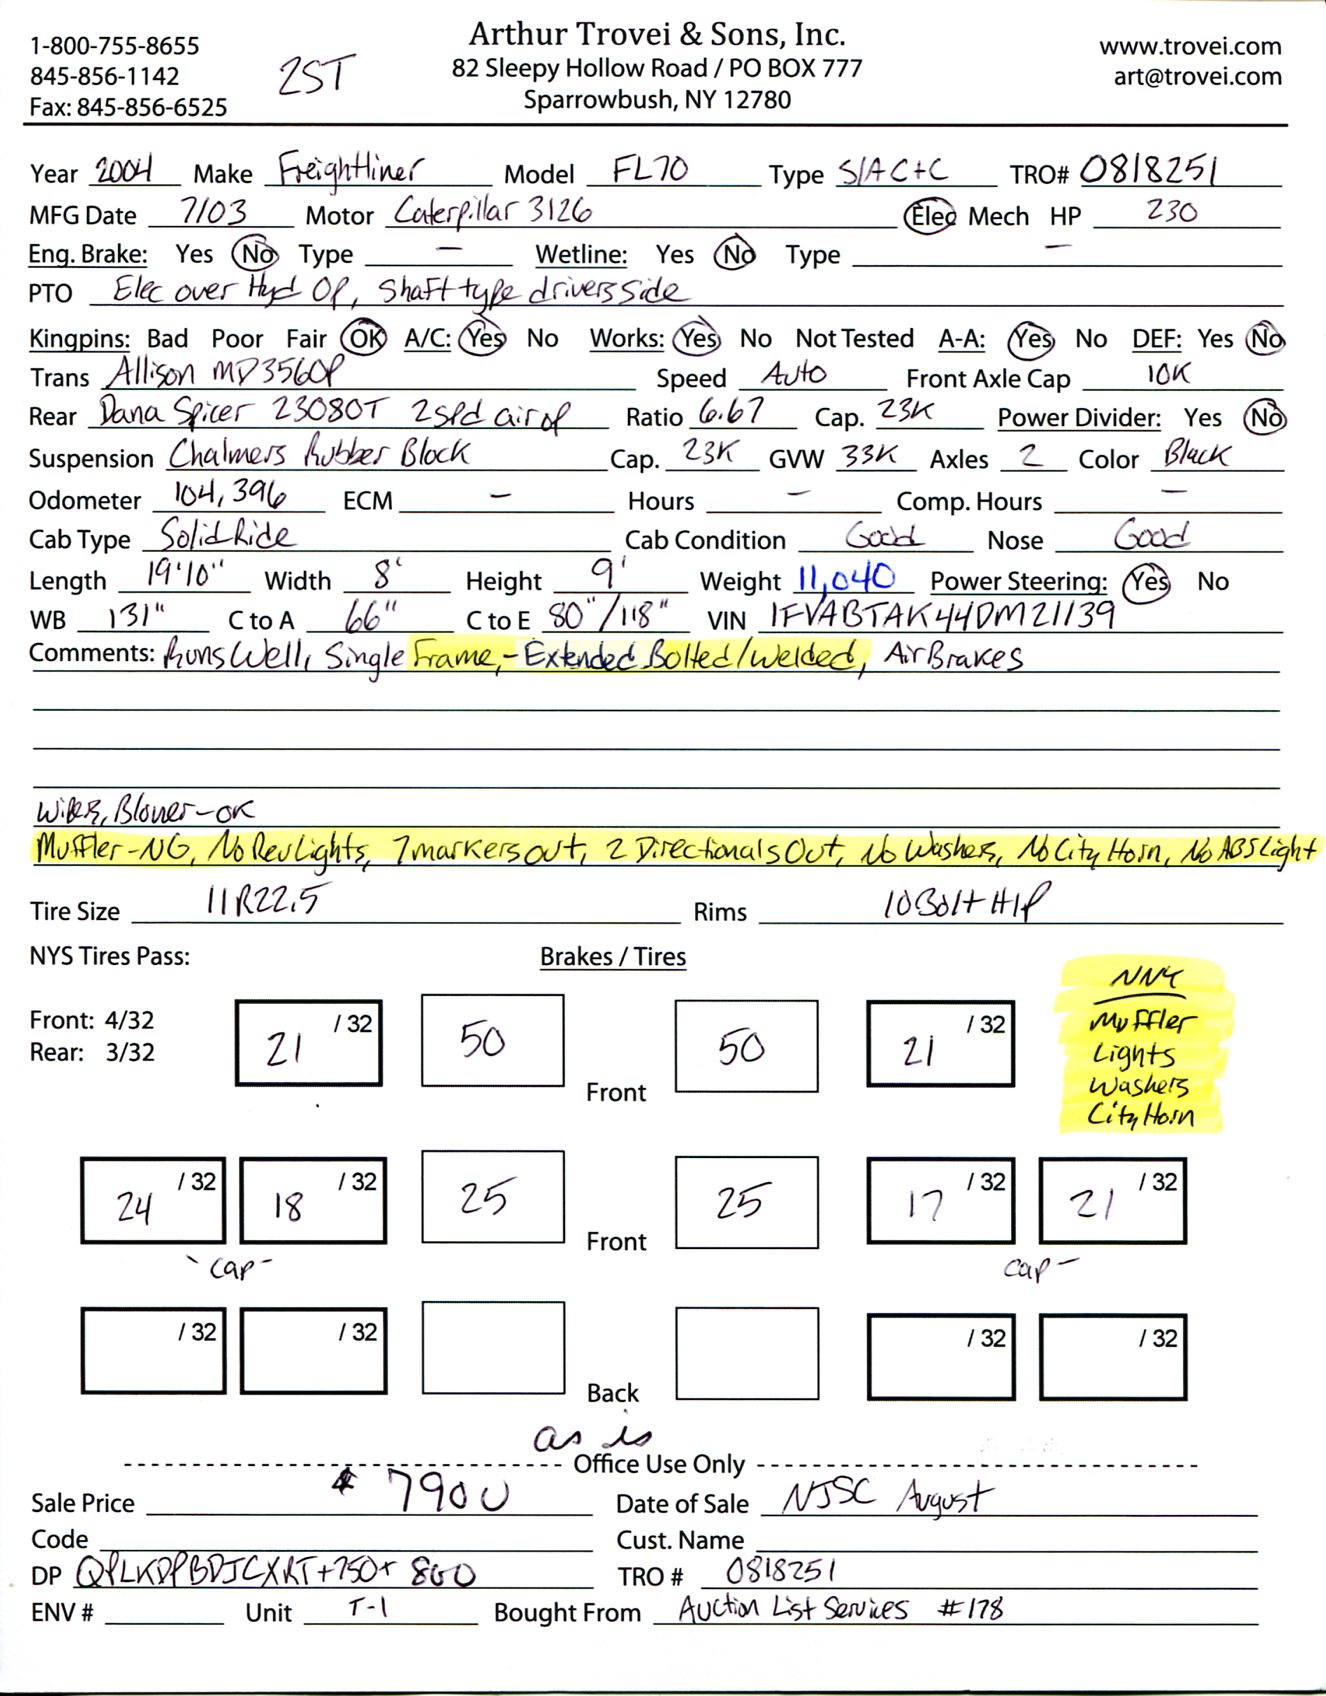 1-800-755-8655
845-856-1142
Fax: 845-856-6525
2ST
Arthur Trovei & Sons, Inc.
82 Sleepy Hollow Road / PO BOX 777
Sparrowbush, NY 12780
www.trovei.com
art@trovei.com
Year 2004 Make Freightliner Model FL70 Type S/A C+C TRO# 0818251
MFG Date 7/03 Motor Caterpillar 3126 Elec Mech HP 230
Eng. Brake: Yes No Type — Wetline: Yes No Type —
PTO Elec over Hyd Op, Shaft type drivers side
Kingpins: Bad Poor Fair OK A/C: Yes No Works: Yes No Not Tested A-A: Yes No DEF: Yes No
Trans Allison MD3560P Speed Auto Front Axle Cap 10K
Rear Dana Spicer 23080T 2spd air op Ratio 6.67 Cap. 23K Power Divider: Yes No
Suspension Chalmers Rubber Block Cap. 23K GVW 33K Axles 2 Color Black
Odometer 104,396 ECM — Hours — Comp. Hours —
Cab Type Solid Ride Cab Condition Good Nose Good
Length 19'10" Width 8' Height 9' Weight 11,040 Power Steering: Yes No
WB 131" C to A 66" C to E 80"/118" VIN 1FVABTAK44DM21139
Comments: Runs Well, Single Frame,- Extended Bolted/Welded, Air Brakes
Wipers, Blower-OK
Muffler-NG, No Rev Lights, 7 markers out, 2 Directionals Out, No Washers, No City Horn, No ABS Light
Tire Size 11R22.5 Rims 10 Bolt H/P
NYS Tires Pass: Brakes / Tires
Front: 4/32
Rear: 3/32
21 /32 50 Front 50 21 /32
NNY
Muffler
Lights
Washers
City Horn
24 /32 18 /32 25 Front 25 17 /32 21 /32
-Cap- Cap-
/32 /32 Back /32 /32
as is
Office Use Only
Sale Price $7900 Date of Sale NJSC August
Code Cust. Name
DP QPLKDPBDJCXRT+750+ 800 TRO # 0818251
ENV # Unit T-1 Bought From Auction List Services #178